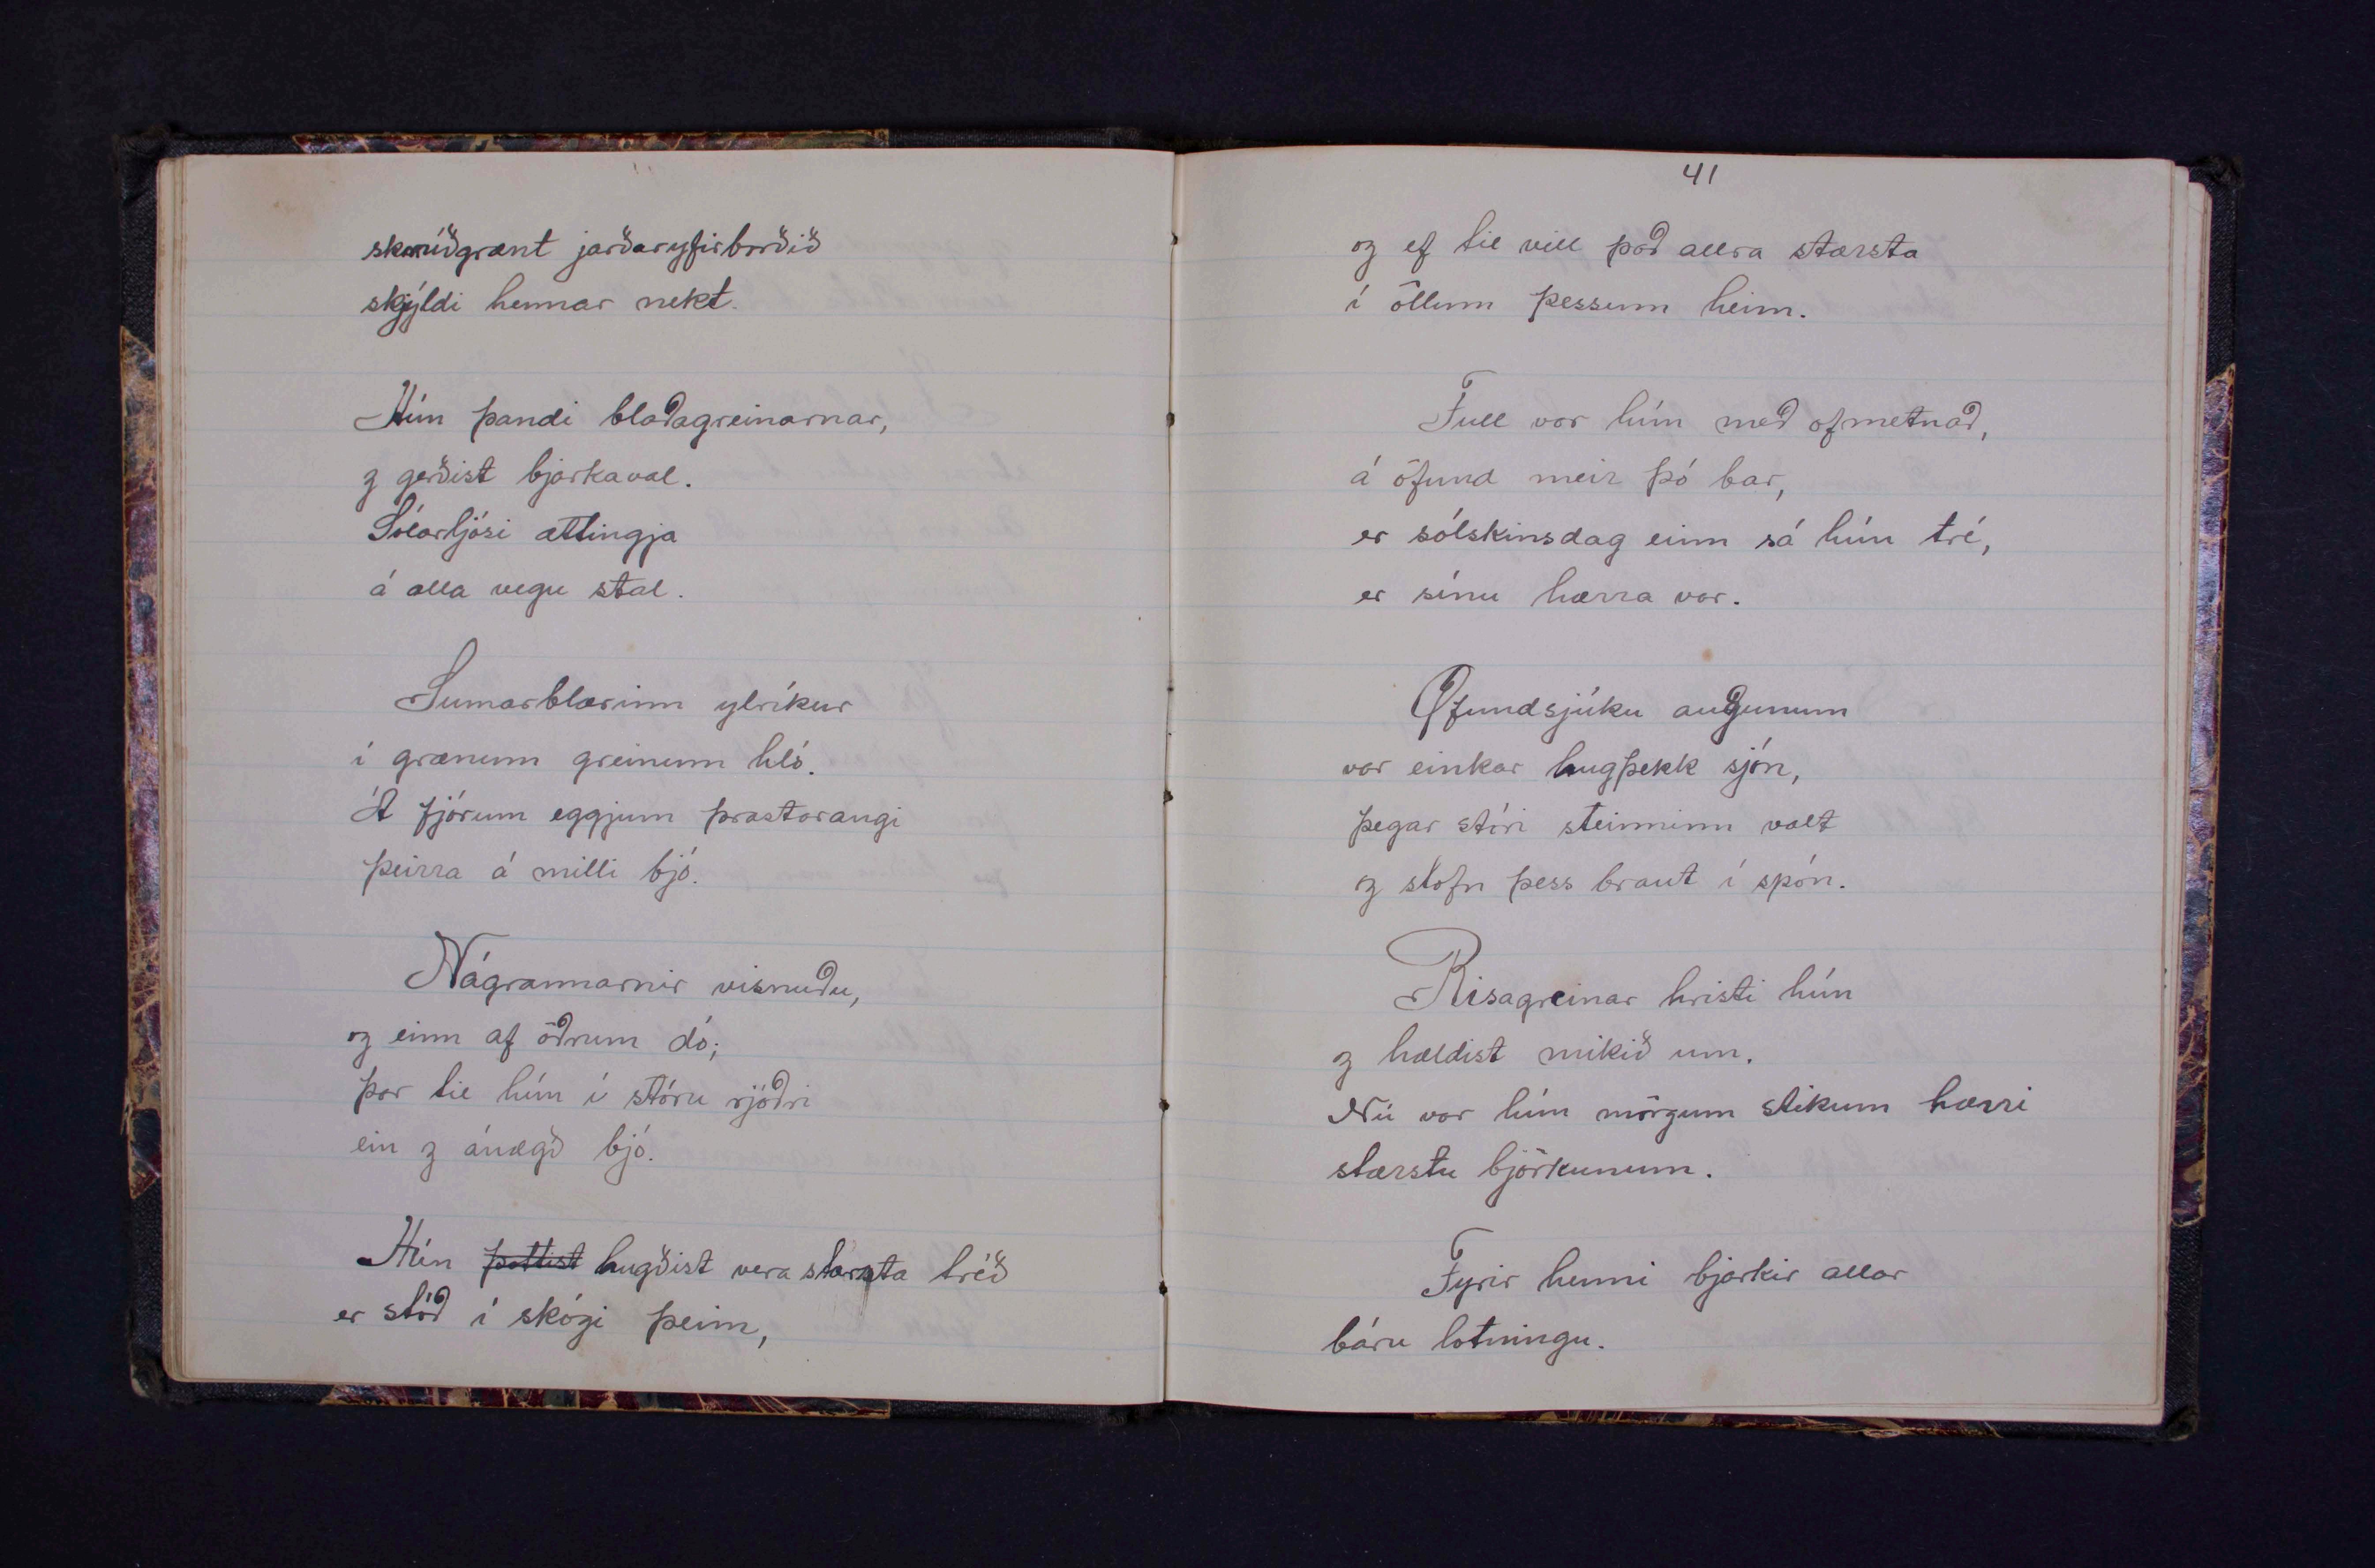 skrúðgrænt jarðaryfirborðið
skýldi hennar nekt.
Hún þandi blaðagreinarnar,
og gerðist bjarkaval.
Sólarljósi ættingja
á alla vegu stal.
Sumarblærinn ylríkur
í grænum greinum hló.
Á fjórum eggjum þrastarangi
þeirra á milli bjó.
Nágrannarnir visnuðu,
og einn af öðrum dó;
þar til hún í stóru rjóðri
ein og ánægð bjó.
Hún þóttist hugðist vera stærsta tréð
er stóð í skógi þeim,
41
og ef til vill það allra stærsta
í öllum þessum heim.
Full var hún með ofmetnað,
á öfund meir þó bar,
er sólskinsdag einn sá hún tré,
er sínu hærra var.
Öfundsjúku augunum
var einkar hugþekk sjón,
þegar stóri steinninn valt
og stofn þess braut í spón.
Risagreinar hristi hún
og hældist mikið um.
Nú var hún mörgum stikum hærri
stærstu björkunum.
Fyrir henni bjarkir allar
báru lotningu.